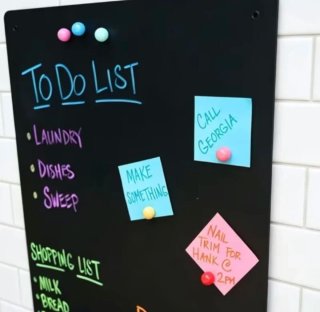 TO DO LIST
• LAUNDRY
• DISHES
• SWEEP
CALL
GEORGIA
MAKE
SOMETHING
NAIL
TRIM FOR
HANK @
2PM
SHOPPING LIST
• MILK
• BREAD